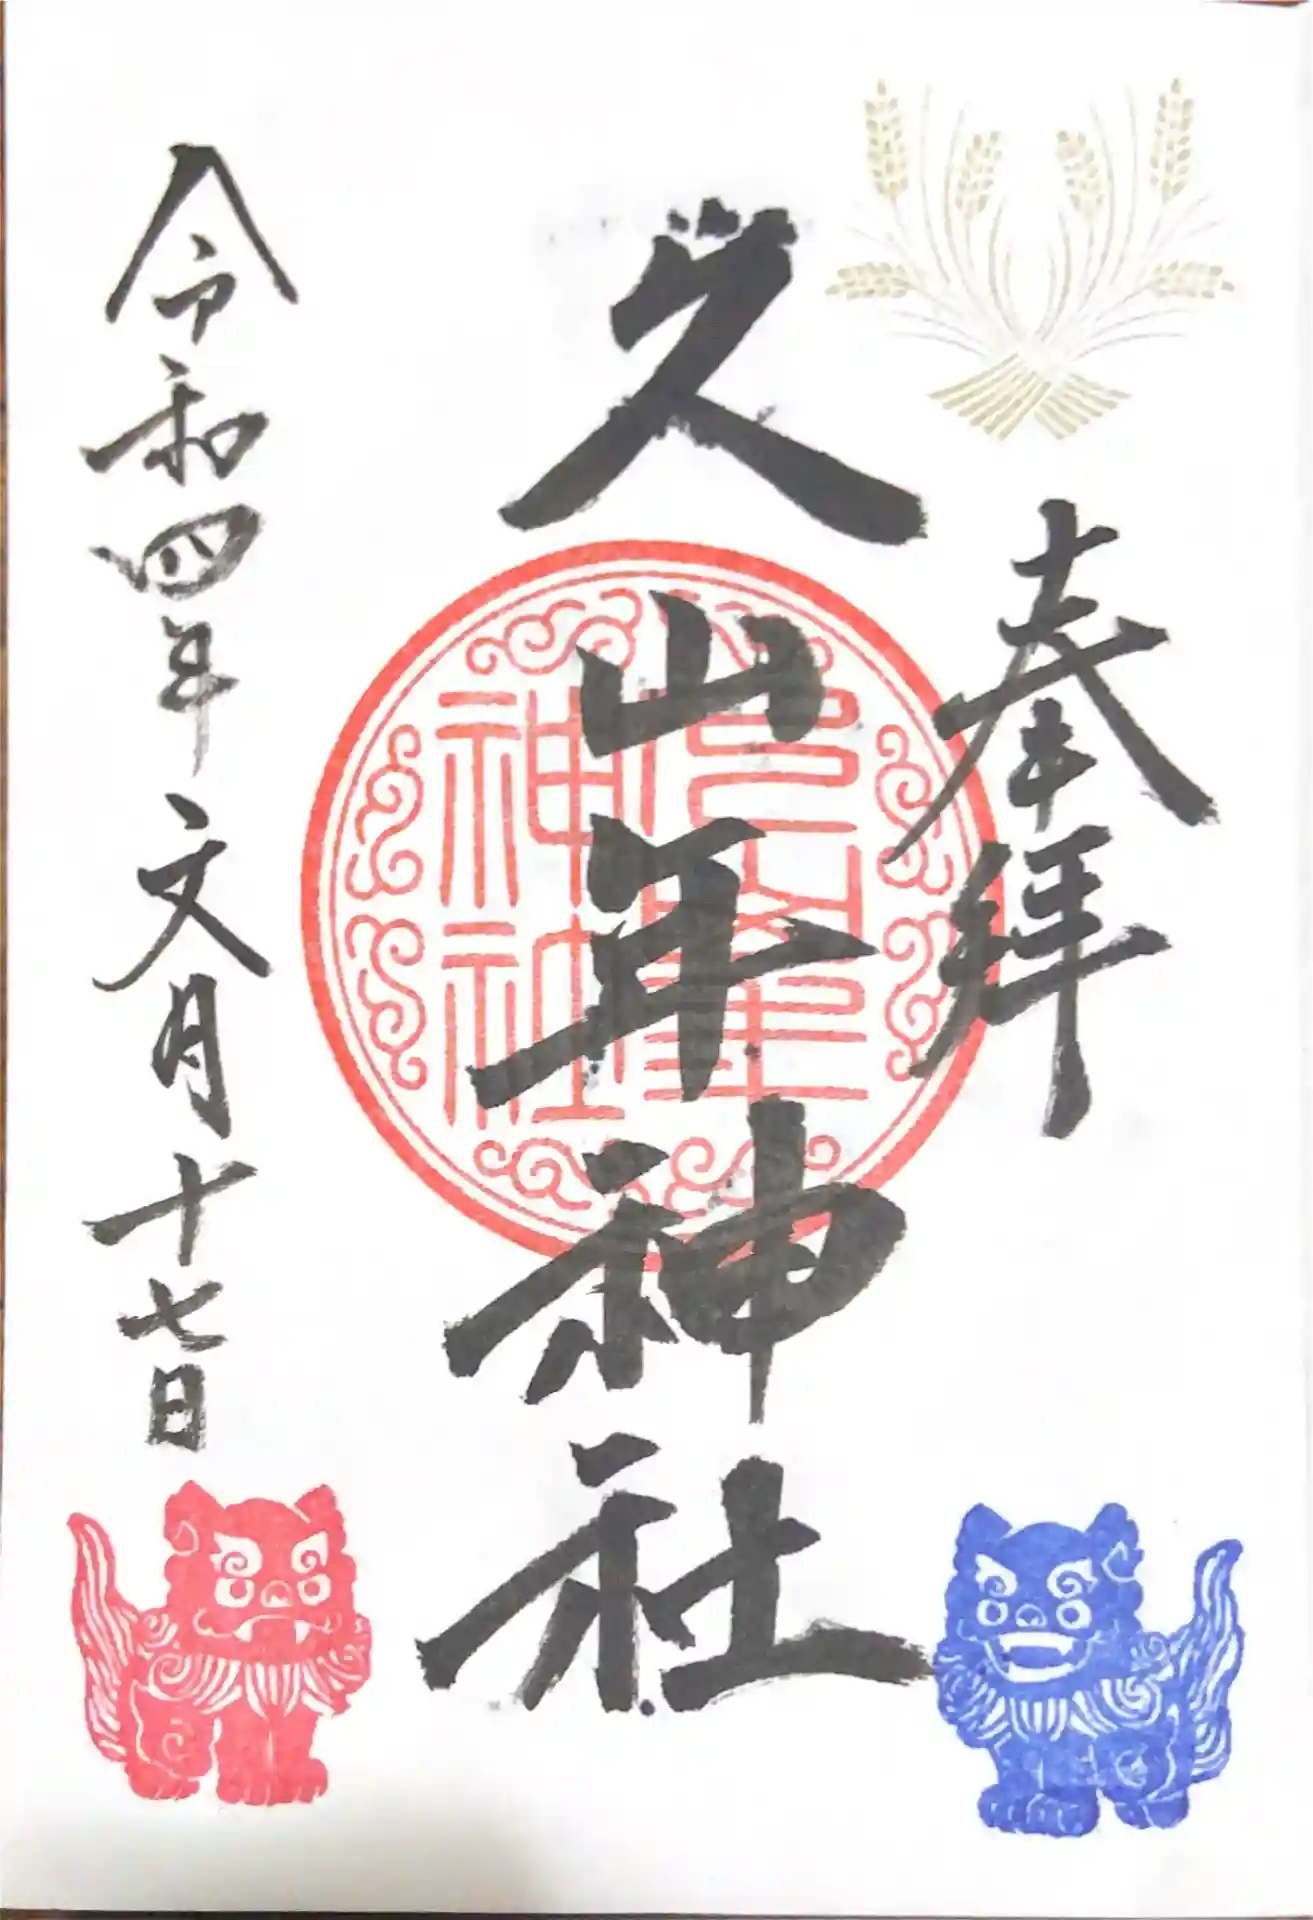 奉拝
久山年神社
久山年神社
令和四年文月十七日